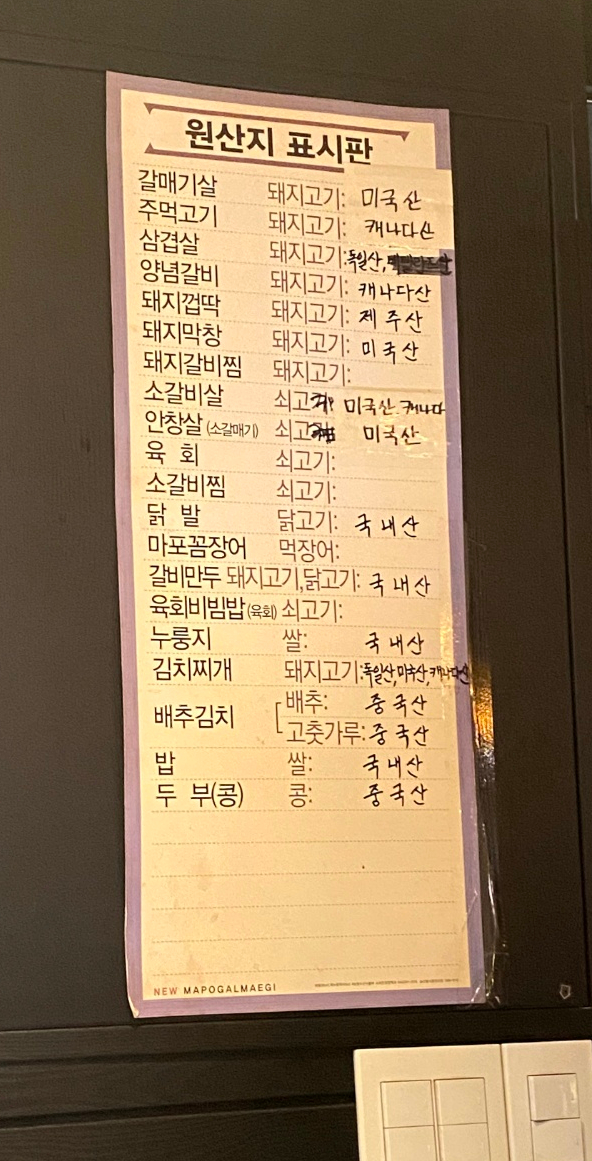 원산지 표시판
갈매기살 돼지고기: 미국산
주먹고기 돼지고기: 캐나다산
삼겹살 돼지고기: 독일산,
양념갈비 돼지고기: 캐나다산
돼지껍딱 돼지고기: 제주산
돼지막창 돼지고기: 미국산
돼지갈비찜 돼지고기:
소갈비살 쇠고 미국산. 캐나다
안창살 (소갈매기) 쇠고 미국산
육 회 쇠고기:
소갈비찜 쇠고기:
닭 발 닭고기: 국내산
마포꼼장어 먹장어:
갈비만두 돼지고기,닭고기: 국내산
육회비빔밥(육회) 쇠고기:
누룽지 쌀: 국내산
김치찌개 돼지고기: 독일산,미국산,캐나다산
배추: 중국산
배추김치
고춧가루: 중국산
밥 쌀: 국내산
두 부(콩) 콩: 중국산
NEW MAPOGALMAEGI